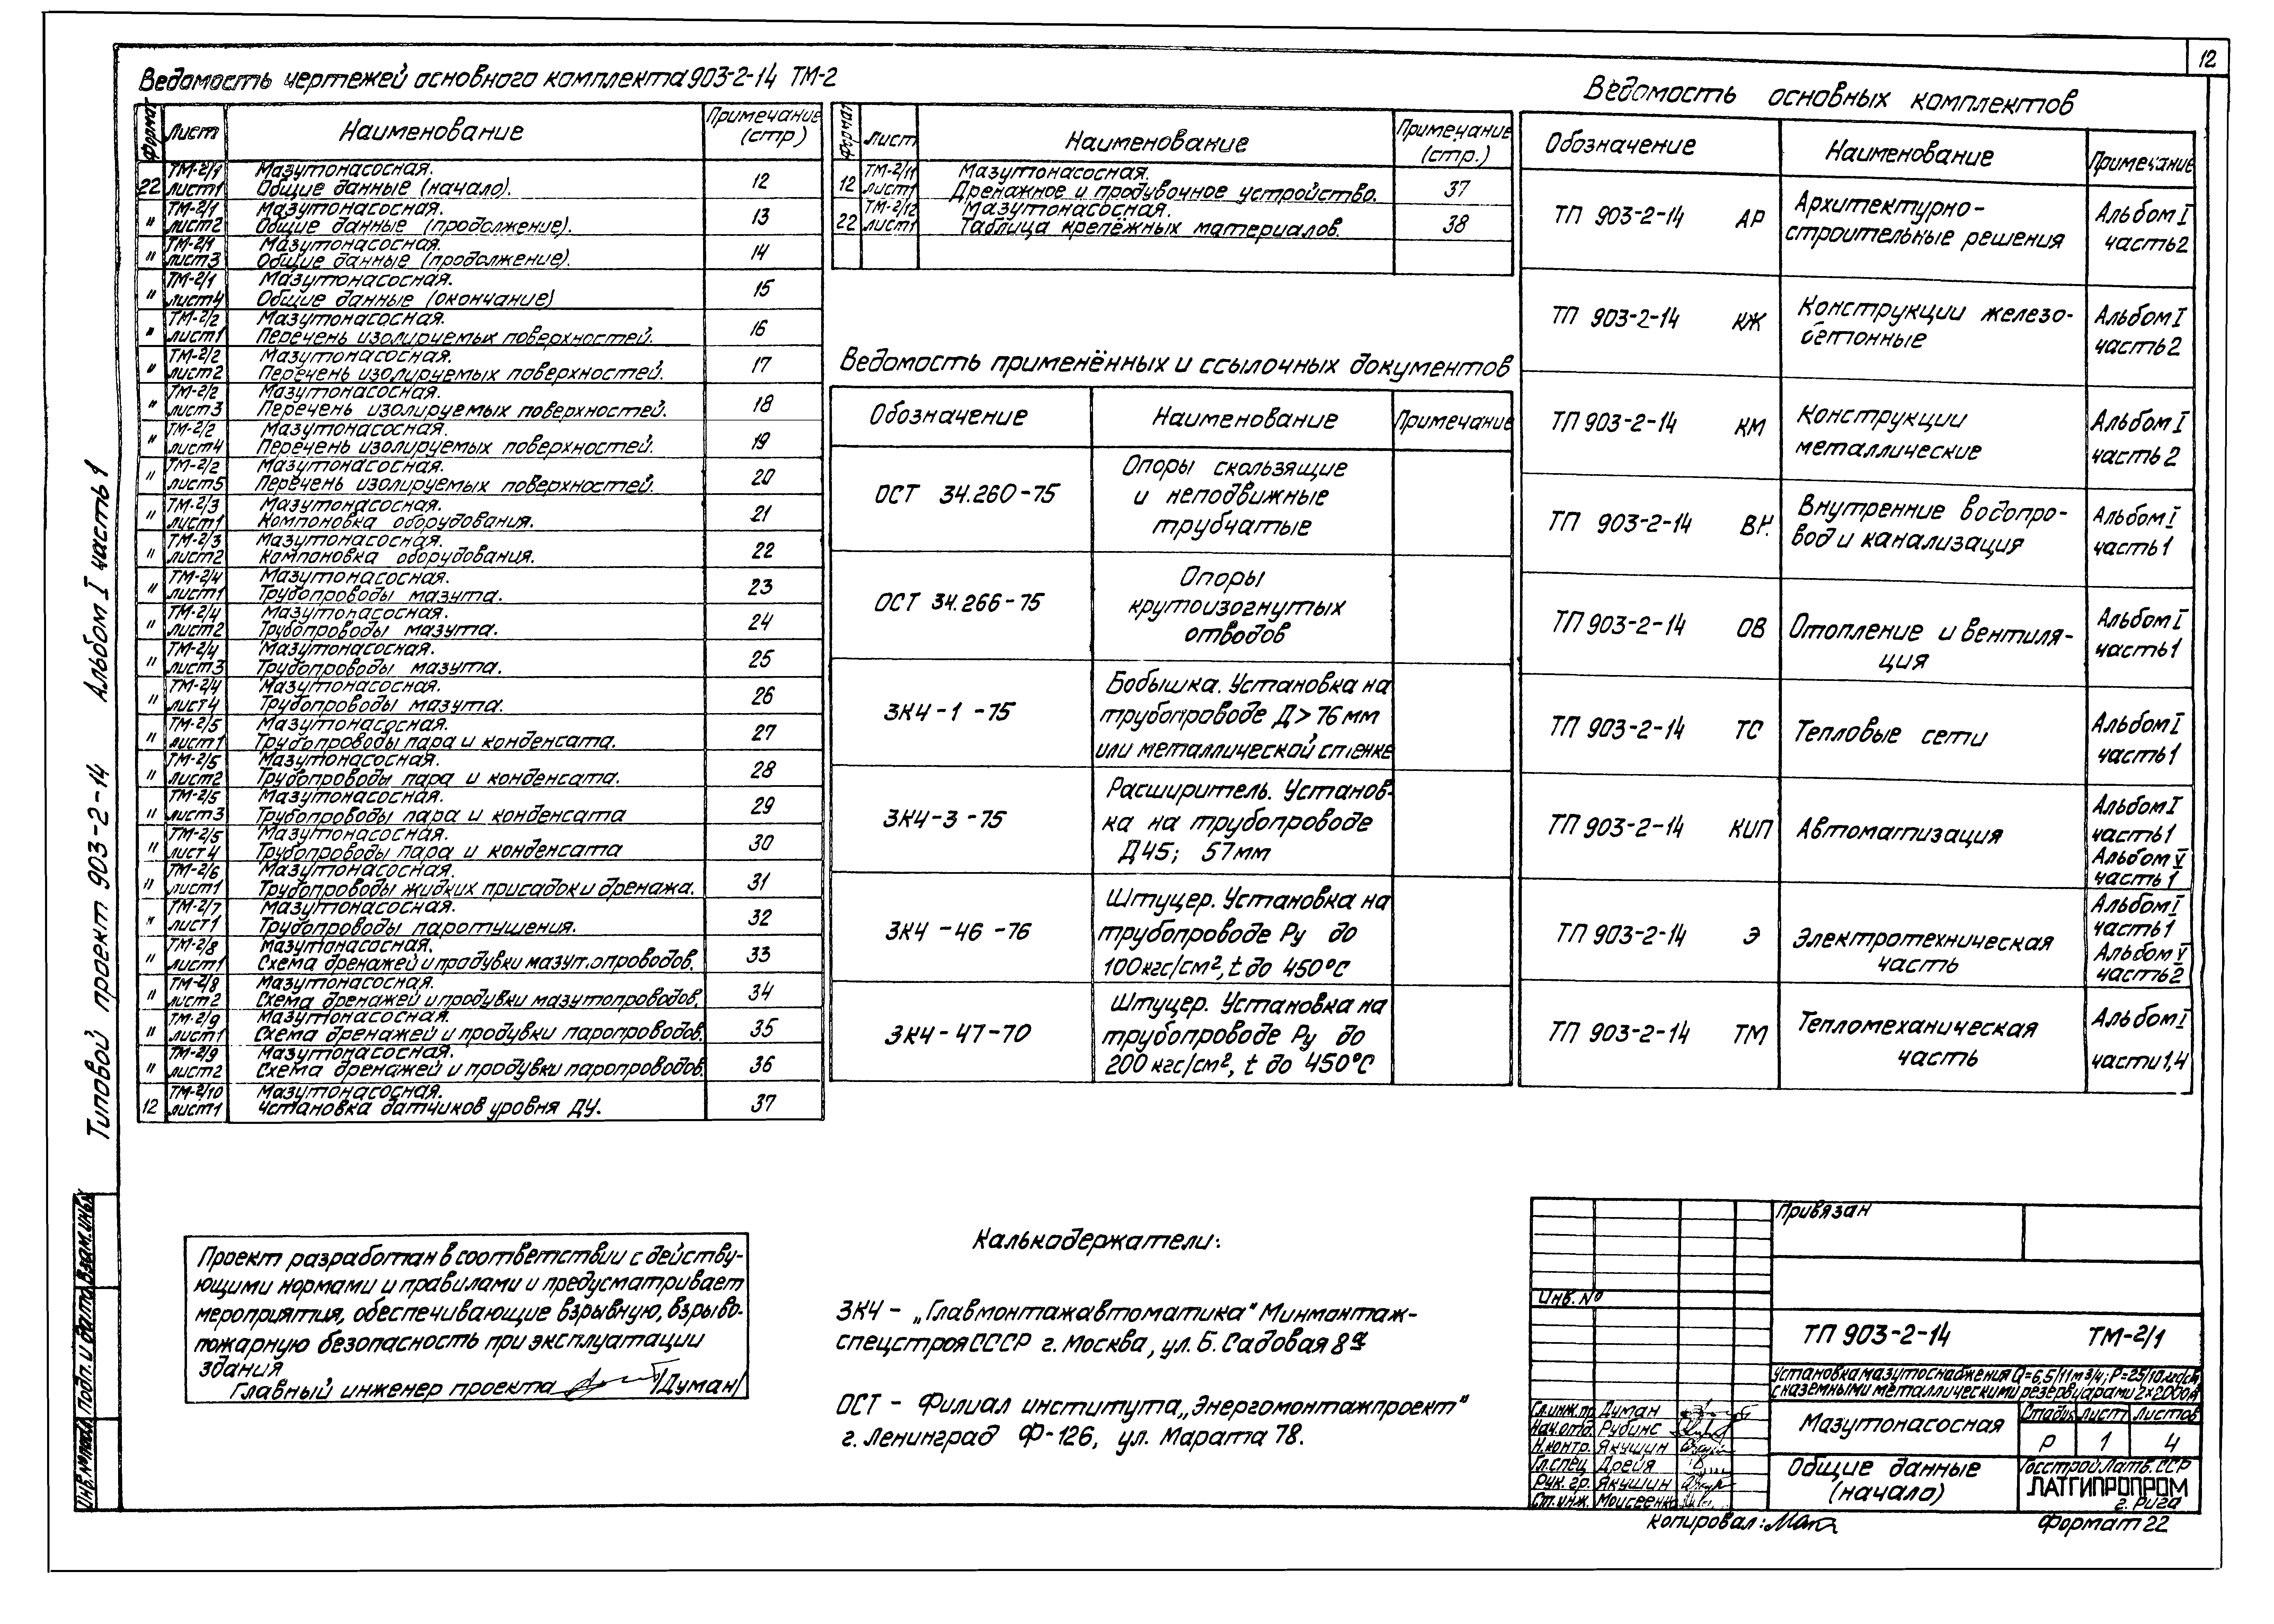 12
Ведомость чертежей основного комплекта 903-2-14 ТМ-2
Формат Лист Наименование Примечание (стр)
22 ТМ-2/1 лист1 Мазутонасосная. Общие данные (начало). 12
" ТМ-2/1 лист2 Мазутонасосная. Общие данные (продолжение). 13
" ТМ-2/1 лист3 Мазутонасосная. Общие данные (продолжение). 14
" ТМ-2/1 лист4 Мазутонасосная. Общие данные (окончание) 15
" ТМ-2/2 лист1 Мазутонасосная. Перечень изолируемых поверхностей. 16
" ТМ-2/2 лист2 Мазутонасосная. Перечень изолируемых поверхностей. 17
" ТМ-2/2 лист3 Мазутонасосная. Перечень изолируемых поверхностей. 18
" ТМ-2/2 лист4 Мазутонасосная. Перечень изолируемых поверхностей. 19
" ТМ-2/2 лист5 Мазутонасосная. Перечень изолируемых поверхностей. 20
" ТМ-2/3 лист1 Мазутонасосная. Компоновка оборудования. 21
" ТМ-2/3 лист2 Мазутонасосная. Компоновка оборудования. 22
" ТМ-2/4 лист1 Мазутонасосная. Трубопроводы мазута. 23
" ТМ-2/4 лист2 Мазутонасосная. Трубопроводы мазута. 24
" ТМ-2/4 лист3 Мазутонасосная. Трубопроводы мазута. 25
" ТМ-2/4 лист4 Мазутонасосная. Трубопроводы мазута. 26
" ТМ-2/5 лист1 Мазутонасосная. Трубопроводы пара и конденсата. 27
" ТМ-2/5 лист2 Мазутонасосная. Трубопроводы пара и конденсата. 28
" ТМ-2/5 лист3 Мазутонасосная. Трубопроводы пара и конденсата 29
" ТМ-2/5 лист4 Мазутонасосная. Трубопроводы пара и конденсата 30
" ТМ-2/6 лист1 Мазутонасосная. Трубопроводы жидких присадок и дренажа. 31
" ТМ-2/7 лист1 Мазутонасосная. Трубопроводы паротушения. 32
" ТМ-2/8 лист1 Мазутонасосная. Схема дренажей и продувки мазутопроводов. 33
" ТМ-2/8 лист2 Мазутонасосная. Схема дренажей и продувки мазутопроводов. 34
" ТМ-2/9 лист1 Мазутонасосная. Схема дренажей и продувки паропроводов. 35
" ТМ-2/9 лист2 Мазутонасосная. Схема дренажей и продувки паропроводов. 36
12 ТМ-2/10 лист1 Мазутонасосная. Установка датчиков уровня ДУ. 37
Формат Лист Наименование Примечание (стр.)
12 ТМ-2/11 лист1 Мазутонасосная. Дренажное и продувочное устройство. 37
22 ТМ-2/12 лист1 Мазутонасосная. Таблица крепёжных материалов. 38
Ведомость применённых и ссылочных документов
Обозначение Наименование Примечание
ОСТ 34.260-75 Опоры скользящие
и неподвижные
трубчатые
ОСТ 34.266-75 Опоры
крутоизогнутых
отводов
ЗК4-1-75 Бобышка. Установка на
трубопроводе Д>76мм
или металлической стенке
ЗК4-3-75 Расширитель. Установ-
ка на трубопроводе
Д45; 57мм
ЗК4-46-76 Штуцер. Установка на
трубопроводе Ру до
100кгс/см², t до 450°С
ЗК4-47-70 Штуцер. Установка на
трубопроводе Ру до
200кгс/см², t до 450°С
Ведомость основных комплектов
Обозначение Наименование Примечание
ТП 903-2-14 АР Архитектурно-
строительные решения Альбом I часть2
ТП 903-2-14 КЖ Конструкции железо-
бетонные Альбом I часть2
ТП 903-2-14 КМ Конструкции
металлические Альбом I часть 2
ТП 903-2-14 ВК Внутренние водопро-
вод и канализация Альбом I часть1
ТП 903-2-14 ОВ Отопление и вентиля-
ция Альбом I часть1
ТП 903-2-14 ТС Тепловые сети Альбом I часть1
ТП 903-2-14 КИП Автоматизация Альбом I часть1 Альбом V часть1
ТП 903-2-14 Э Электротехническая
часть Альбом I часть1 Альбом V часть2
ТП 903-2-14 ТМ Тепломеханическая
часть Альбом I части1,4
Типовой проект 903-2-14 Альбом I часть 1
Инв.№подл. Подп. и дата Взам.инв.№
Проект разработан в соответствии с действу-
ющими нормами и правилами и предусматривает
мероприятия, обеспечивающие взрывную, взрыво-
пожарную безопасность при эксплуатации
здания
Главный инженер проекта /Думан/
Калькодержатели:
ЗК4 - „Главмонтажавтоматика" Минмонтаж-
спецстроя СССР г. Москва, ул. Б. Садовая 8а
ОСТ - Филиал института „Энергомонтажпроект"
г. Ленинград Ф-126, ул. Марата 78.
Привязан
Инв. №
ТП 903-2-14 ТМ-2/1
Установка мазутоснабжения Q=6,5/11м³/ч; Р=25/10кгс/см²
с наземными металлическими резервуарами 2×2000м³
Гл.инж.пр. Думан
Нач.отд. Рубинс
Н.контр. Якушин
Гл.спец. Дрейя
Рук. гр. Якушин
Ст.инж. Моисеенко
Мазутонасосная
Стадия Лист Листов
Р 1 4
Общие данные
(начало)
Госстрой Латв.ССР
ЛАТГИПРОПРОМ
г. Рига
Копировал:
Формат 22